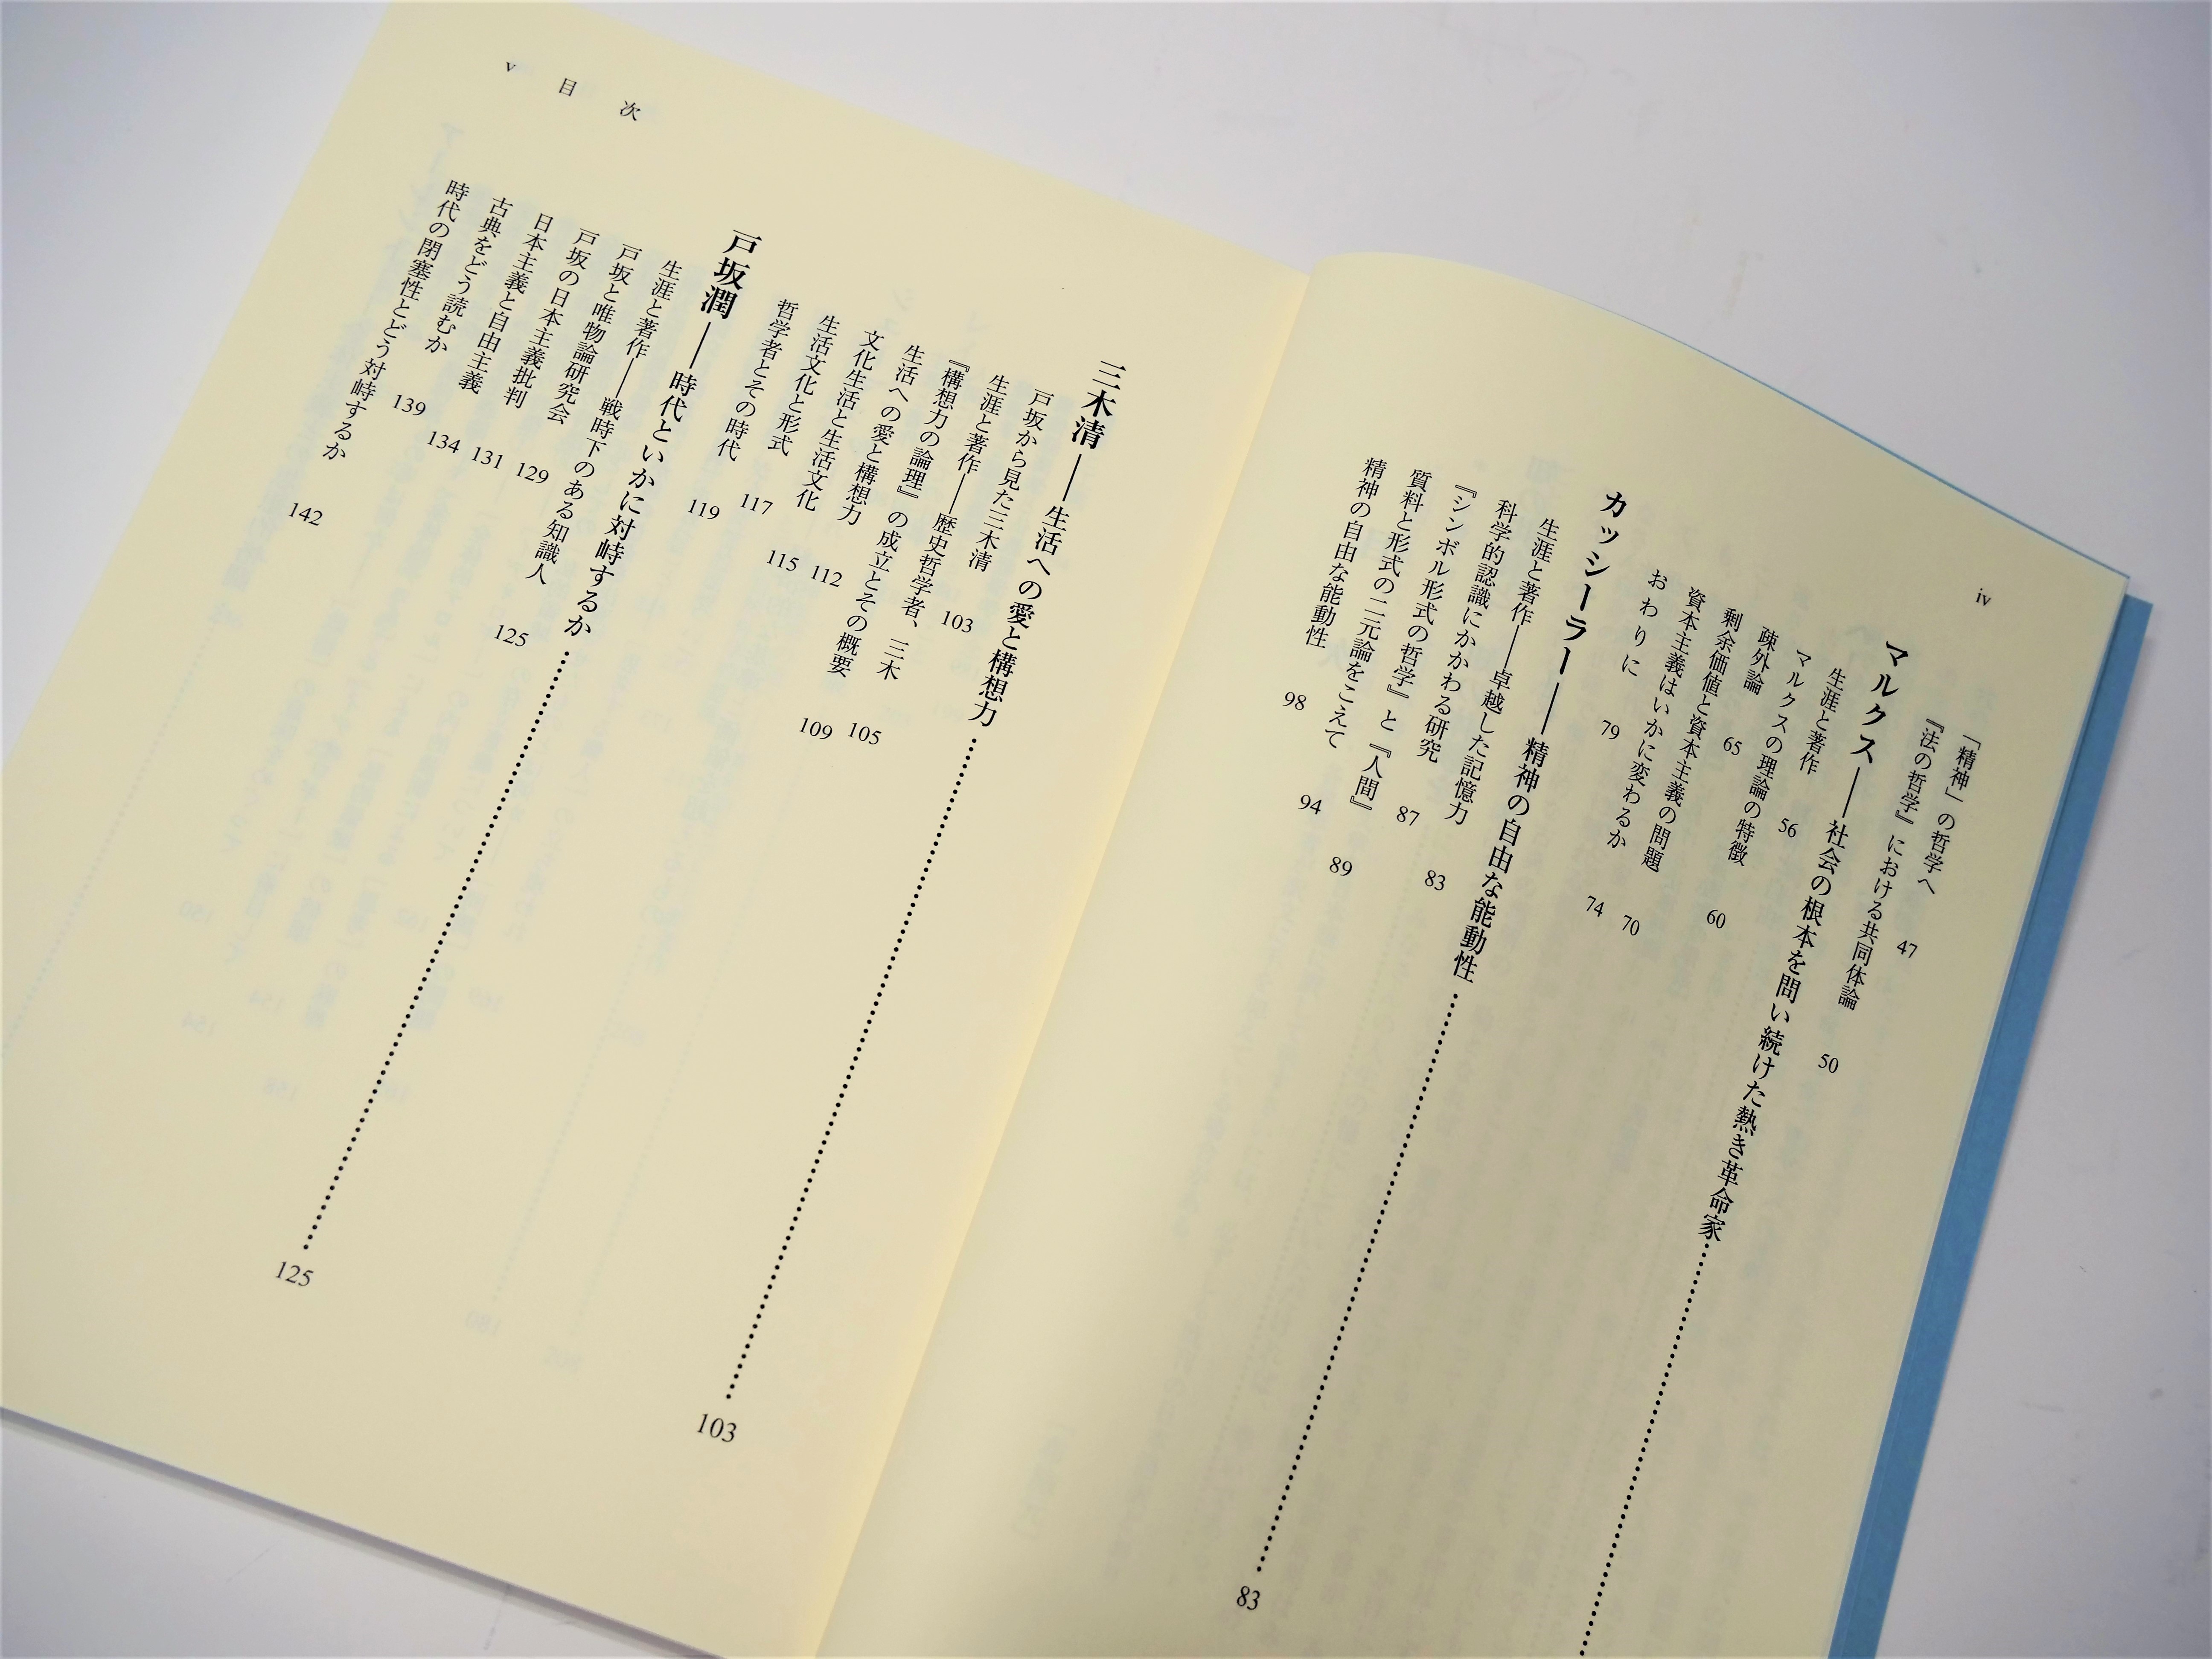 iv
「精神」の哲学へ 47
『法の哲学』における共同体論 50
マルクス――社会の根本を問い続けた熱き革命家
生涯と著作 56
マルクスの理論の特徴 60
疎外論 65
剰余価値と資本主義の問題 70
資本主義はいかに変わるか 74
おわりに 79
カッシーラー――精神の自由な能動性 83
生涯と著作――卓越した記憶力 83
科学的認識にかかわる研究 87
『シンボル形式の哲学』と『人間』 89
質料と形式の二元論をこえて 94
精神の自由な能動性 98
v 目次
三木清――生活への愛と構想力 103
戸坂から見た三木清 103
生涯と著作――歴史哲学者、三木 105
『構想力の論理』の成立とその概要 109
生活への愛と構想力 112
文化生活と生活文化 115
生活文化と形式 117
哲学者とその時代 119
戸坂潤――時代といかに対峙するか 125
生涯と著作――戦時下のある知識人 125
戸坂と唯物論研究会 129
戸坂の日本主義批判 131
日本主義と自由主義 134
古典をどう読むか 139
時代の閉塞性とどう対峙するか 142